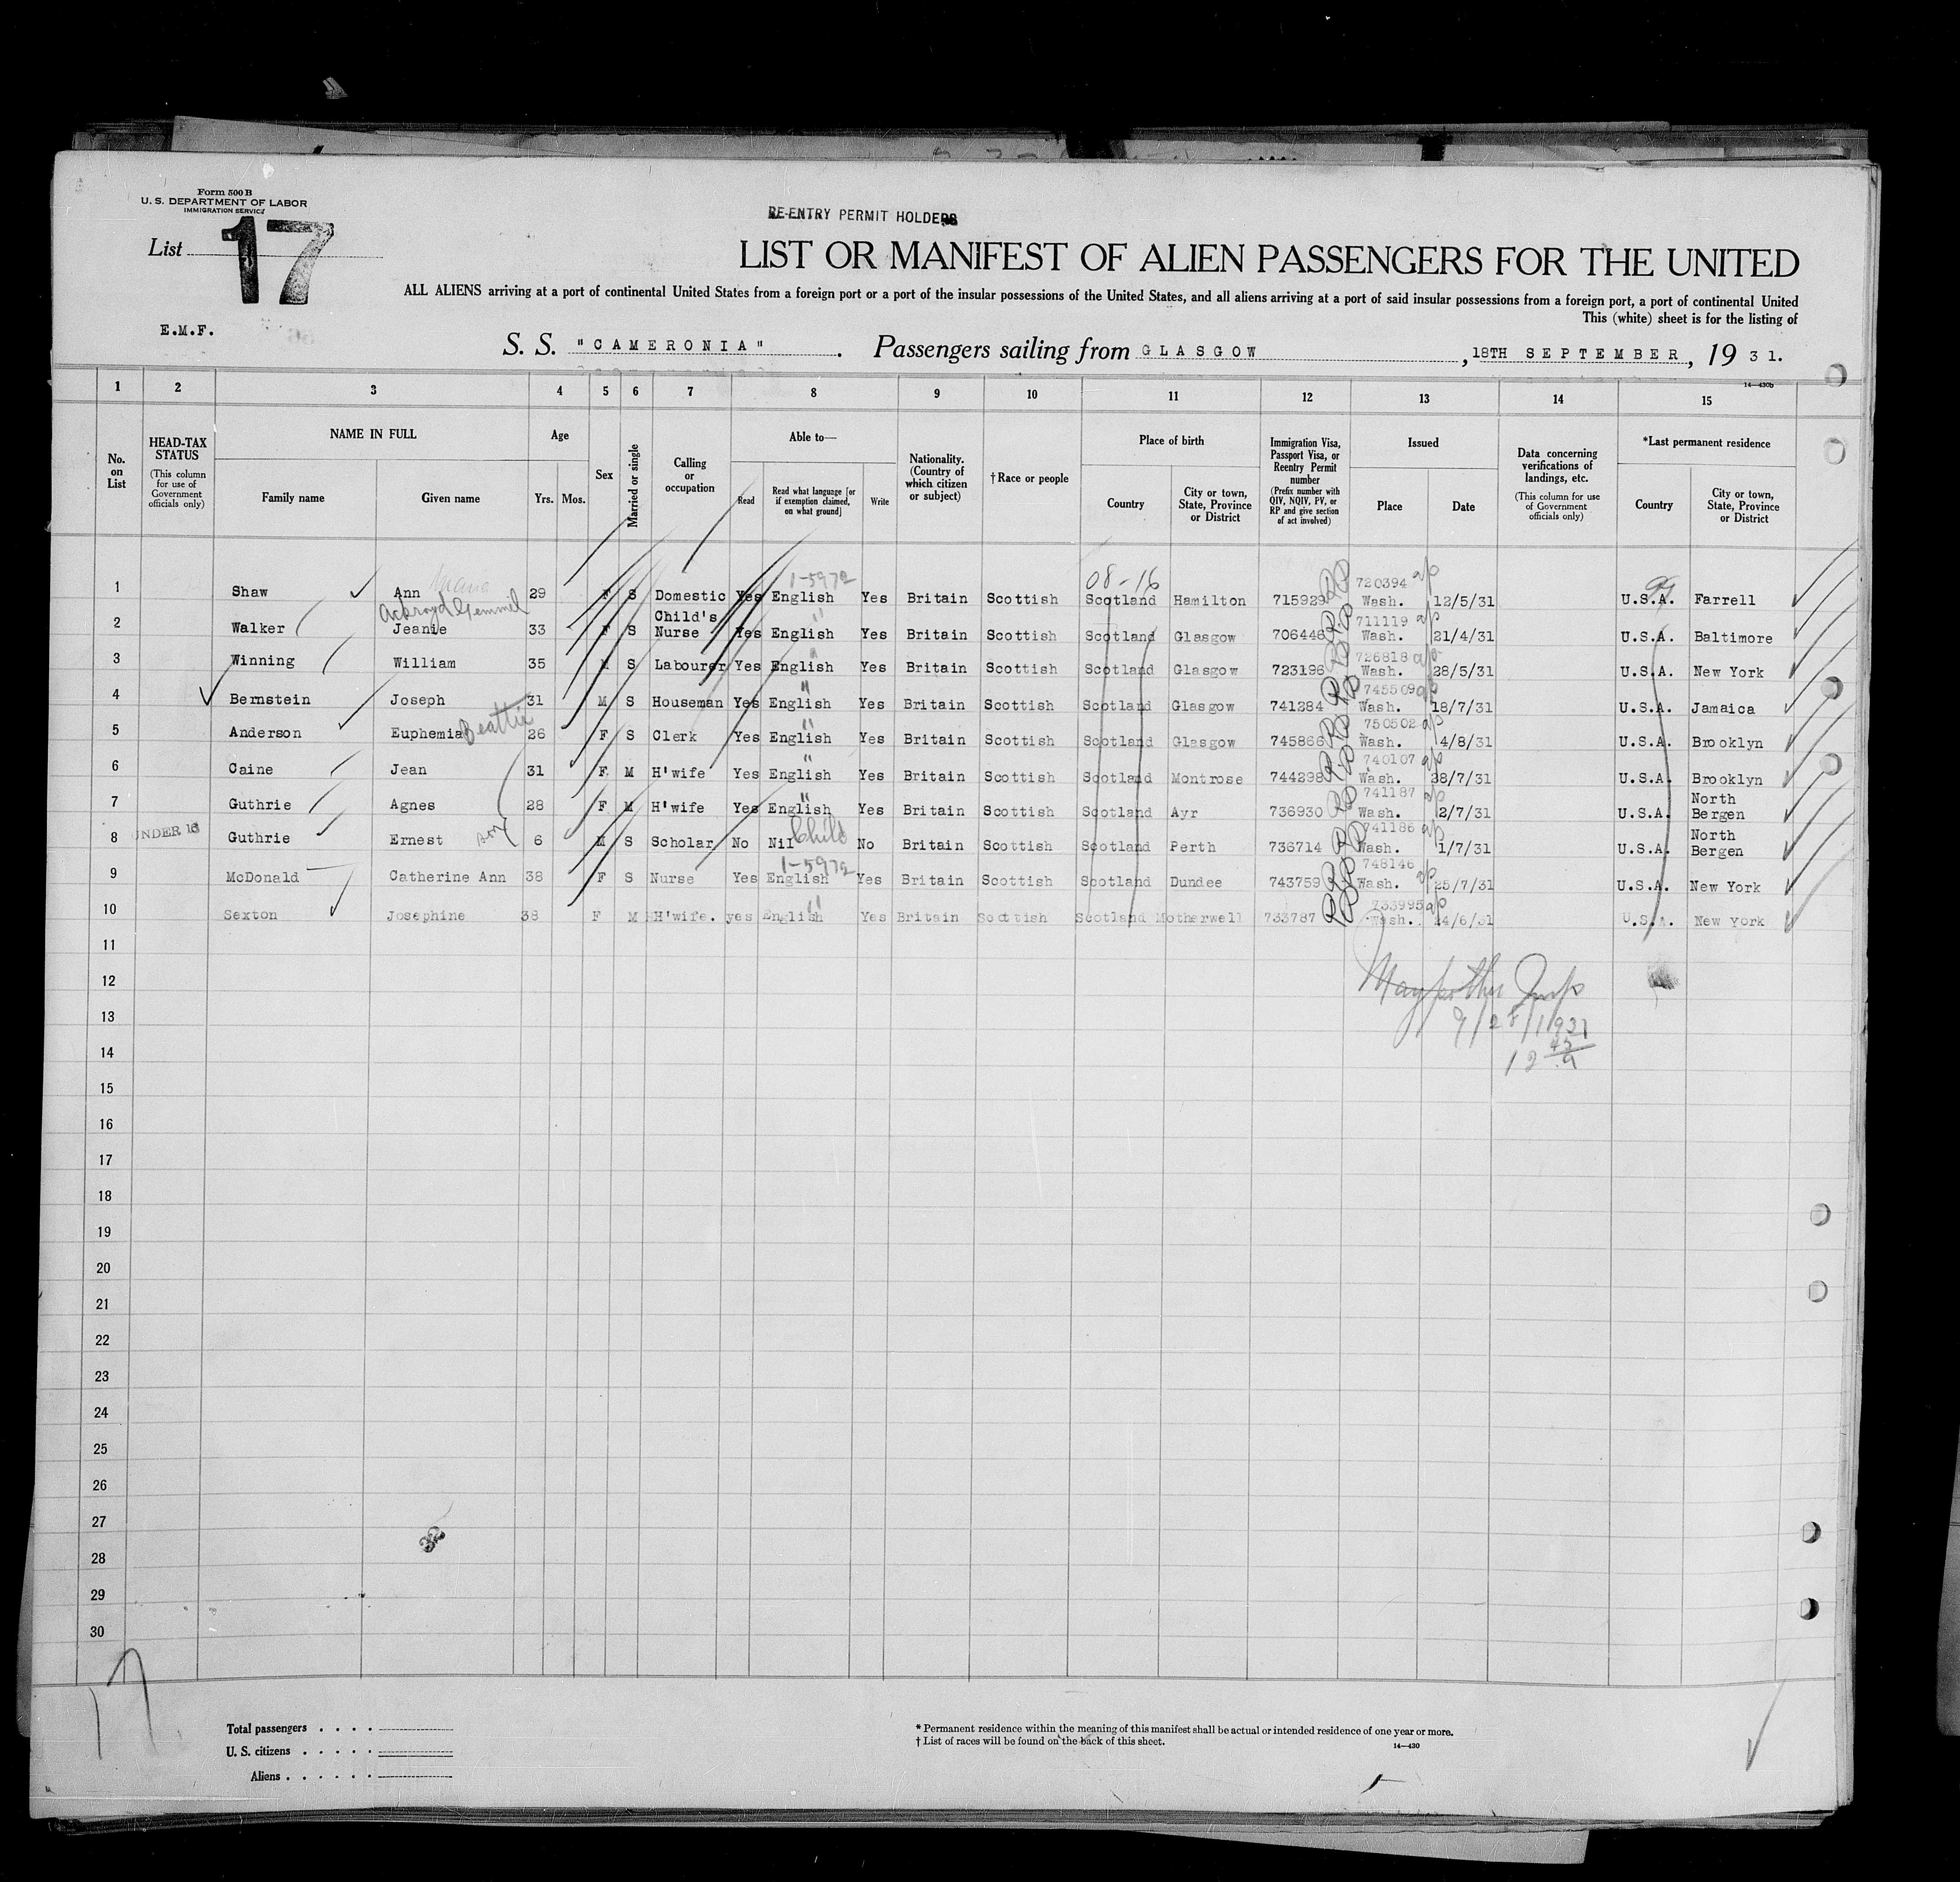 Form 500 B
U. S. DEPARTMENT OF LABOR
IMMIGRATION SERVICE
List 17
RE-ENTRY PERMIT HOLDERS
LIST OR MANIFEST OF ALIEN PASSENGERS FOR THE UNITED
ALL ALIENS arriving at a port of continental United States from a foreign port or a port of the insular possessions of the United States, and all aliens arriving at a port of said insular possessions from a foreign port, a port of continental United
This (white) sheet is for the listing of
E.M.F.
S. S. "CAMERONIA". Passengers sailing from GLASGOW, 18TH SEPTEMBER, 1931.
14—430b
1 2 3 4 5 6 7 8 9 10 11 12 13 14 15
No. on List
HEAD-TAX STATUS (This column for use of Government officials only)
NAME IN FULL
Family name Given name
Age
Yrs. Mos.
Sex
Married or single
Calling or occupation
Able to—
Read
Read what language [or if exemption claimed, on what ground]
Write
Nationality. (Country of which citizen or subject)
†Race or people
Place of birth
Country
City or town, State, Province or District
Immigration Visa, Passport Visa, or Reentry Permit number (Prefix number with QIV, NQIV, PV, or RP and give section of act involved)
Issued
Place Date
Data concerning verifications of landings, etc. (This column for use of Government officials only)
*Last permanent residence
Country
City or town, State, Province or District
1-597a 08-16 720394 a/p
1 Shaw Ann 29 F S Domestic Yes English Yes Britain Scottish Scotland Hamilton 715929 RP Wash. 12/5/31 U.S.A. Farrell
Ackroyd Gemmil Child's " 711119 a/p
2 Walker Jeanie 33 F S Nurse Yes English Yes Britain Scottish Scotland Glasgow 706446 RP Wash. 21/4/31 U.S.A. Baltimore
726818 a/p
3 Winning William 35 M S Labourer Yes English Yes Britain Scottish Scotland Glasgow 723196 RP Wash. 28/5/31 U.S.A. New York
" 745509 a/p
4 Bernstein Joseph 31 M S Houseman Yes English Yes Britain Scottish Scotland Glasgow 741284 RP Wash. 18/7/31 U.S.A. Jamaica
" 750502 a/p
5 Anderson Euphemia Beattie 26 F S Clerk Yes English Yes Britain Scottish Scotland Glasgow 745866 RP Wash. 4/8/31 U.S.A. Brooklyn
" 740107 a/p
6 Caine Jean 31 F M H'wife Yes English Yes Britain Scottish Scotland Montrose 744298 RP Wash. 28/7/31 U.S.A. Brooklyn
" 741187 a/p North
7 Guthrie Agnes 28 F M H'wife Yes English Yes Britain Scottish Scotland Ayr 736930 RP Wash. 2/7/31 U.S.A. Bergen
UNDER 16 Child 741186 a/p North
8 Guthrie Ernest son 6 M S Scholar No Nil No Britain Scottish Scotland Perth 736714 RP Wash. 1/7/31 U.S.A. Bergen
1-597a 748146 a/p
9 McDonald Catherine Ann 38 F S Nurse Yes English Yes Britain Scottish Scotland Dundee 743759 RP Wash. 25/7/31 U.S.A. New York
" 733995 a/p
10 Sexton Josephine 38 F M H'wife. yes English Yes Britain Scottish Scotland Motherwell 733787 RP Wash. 24/6/31 U.S.A. New York
11
12
13 9/28/1931
14 12 45/a
15
16
17
18
19
20
21
22
23
24
25
26
27
28
29
30
17
Total passengers . . . .
U. S. citizens . . . . .
Aliens . . . . . .
* Permanent residence within the meaning of this manifest shall be actual or intended residence of one year or more.
† List of races will be found on the back of this sheet.
14—430